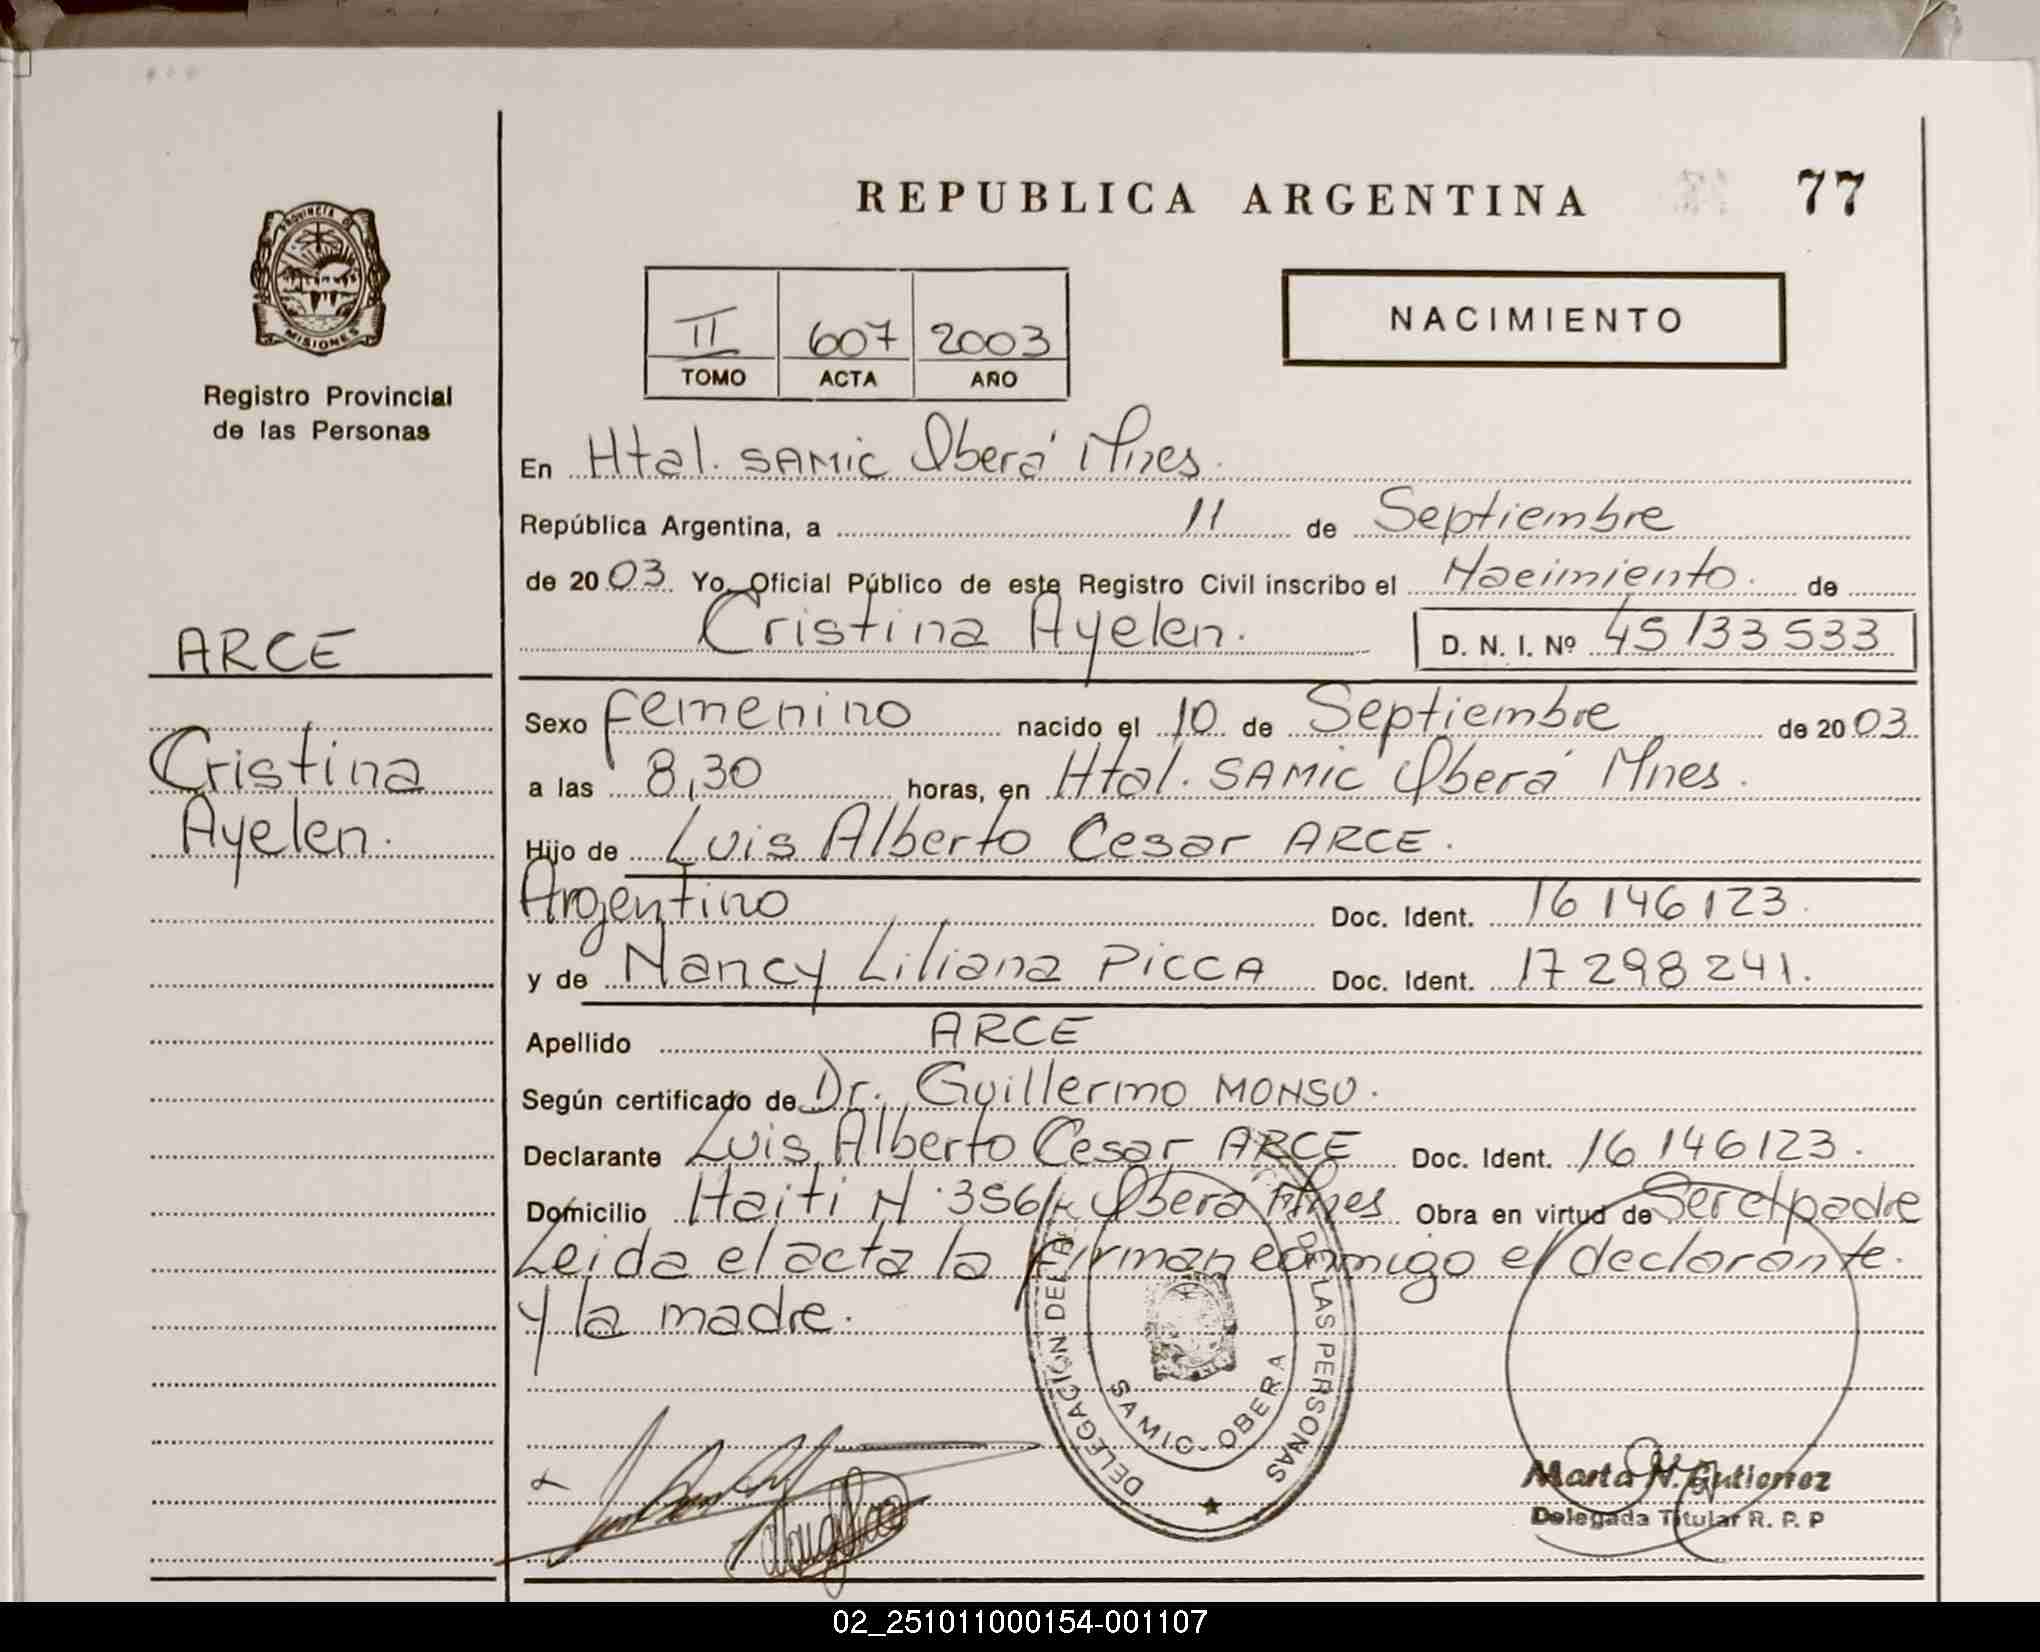 REPUBLICA ARGENTINA 77
PROVINCIA DE
MISIONES
Registro Provincial
de las Personas
II 607 2003
TOMO ACTA AÑO
NACIMIENTO
En Htal. SAMIC Oberá Mnes.
República Argentina, a 11 de Septiembre
de 2003 Yo, Oficial Público de este Registro Civil inscribo el Nacimiento. de
Cristina Ayelen. D. N. I. Nº 45133533
ARCE
Cristina
Ayelen.
Sexo femenino nacido el 10 de Septiembre de 2003
a las 8,30 horas, en Htal. SAMIC Oberá Mnes.
Hijo de Luis Alberto Cesar ARCE.
Argentino Doc. Ident. 16146123.
y de Nancy Liliana PICCA Doc. Ident. 17298241.
Apellido ARCE
Según certificado de Dr. Guillermo MONSU.
Declarante Luis Alberto Cesar ARCE Doc. Ident. 16146123.
Domicilio Haiti N. Oberá Mnes Obra en virtud de Ser el padre
Leida el acta la firman conmigo el declarante.
y la madre.
DELEGACION DE LAS PERSONAS
SAMIC - OBERA
Marta N. Gutierrez
Delegada Titular R. P. P
02_251011000154-001107